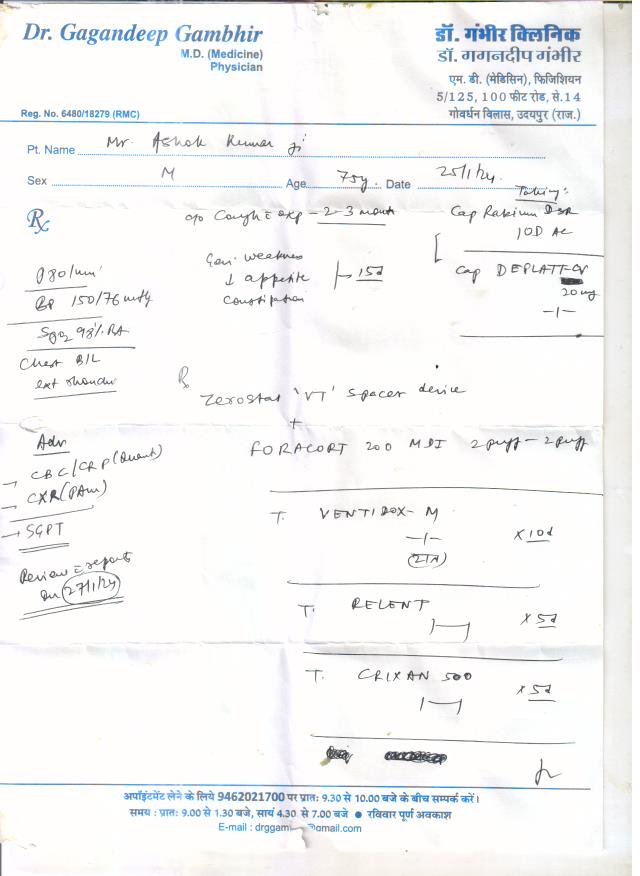 Dr. Gagandeep Gambhir
M.D. (Medicine)
Physician
Reg. No. 6480/18279 (RMC)
डॉ. गंभीर क्लिनिक
डॉ. गगनदीप गंभीर
एम. डी. (मेडिसिन), फिजिशियन
5/125, 100 फीट रोड, से.14
गोवर्धन विलास, उदयपुर (राज.)
Pt. Name Mr. Ashok Kumar ji
Sex M Age 75y. Date 25/1/24.
Rx
c/o Cough c exp - 2-3 month
Gen. weakness
↓ appetite
constipation
15d
Taking:
Cap Rabium DSR
1OD AC
Cap DEPLATT-CV
20 mg
-1-
P80/min
BP 150/76 mmHg
SpO2 98% RA
Chest B/L
ext rhonchi
Rx
Zerostat 'VT' spacer device
+
FORACORT 200 MDI 2puff - 2puff
T. VENTIDOX-M x 10d
-1-
(रात)
T. RELENT x 5d
T. CRIXAN 500 x 5d
Adv
→ CBC/CRP (Quant)
→ CXR (PA View)
→ SGPT
Review c reports
on 27/1/24
अपॉइंटमेंट लेने के लिये 9462021700 पर प्रातः 9.30 से 10.00 बजे के बीच सम्पर्क करें।
समय : प्रातः 9.00 से 1.30 बजे, सायं 4.30 से 7.00 बजे ● रविवार पूर्ण अवकाश
E-mail : drggam @gmail.com